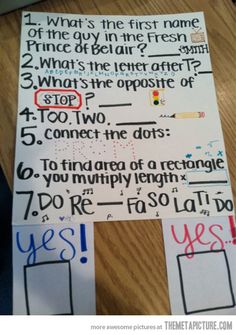 1. What's the first name
of the guy in the Fresh
Prince of Bel air? ____ SMITH
2. What's the letter after T? __
ABCDEFGHIJKLMNOPQRS
3. What's the opposite of
STOP ? __
4. Too, Two, ____.
5. Connect the dots:
PROM
6. To find area of a rectangle
you multiply length x ____
7. Do Re __ Fa So La Ti Do
yes! yes!
more awesome pictures at THEMETAPICTURE.COM